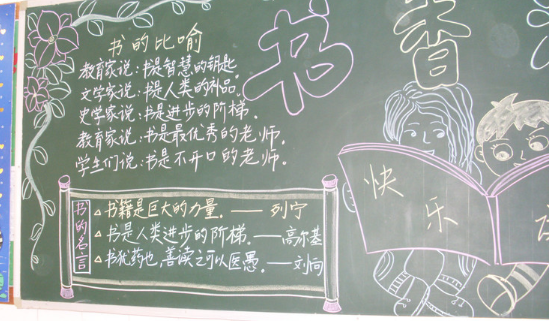 书香
书的比喻
教育家说：书是智慧的钥匙
文学家说：书是人类的礼品。
史学家说：书是进步的阶梯。
教育家说：书是最优秀的老师。
学生们说：书是不开口的老师。
书的名言
书籍是巨大的力量。——列宁
书是人类进步的阶梯。——高尔基
书犹药也，善读之可以医愚。——刘向
快乐